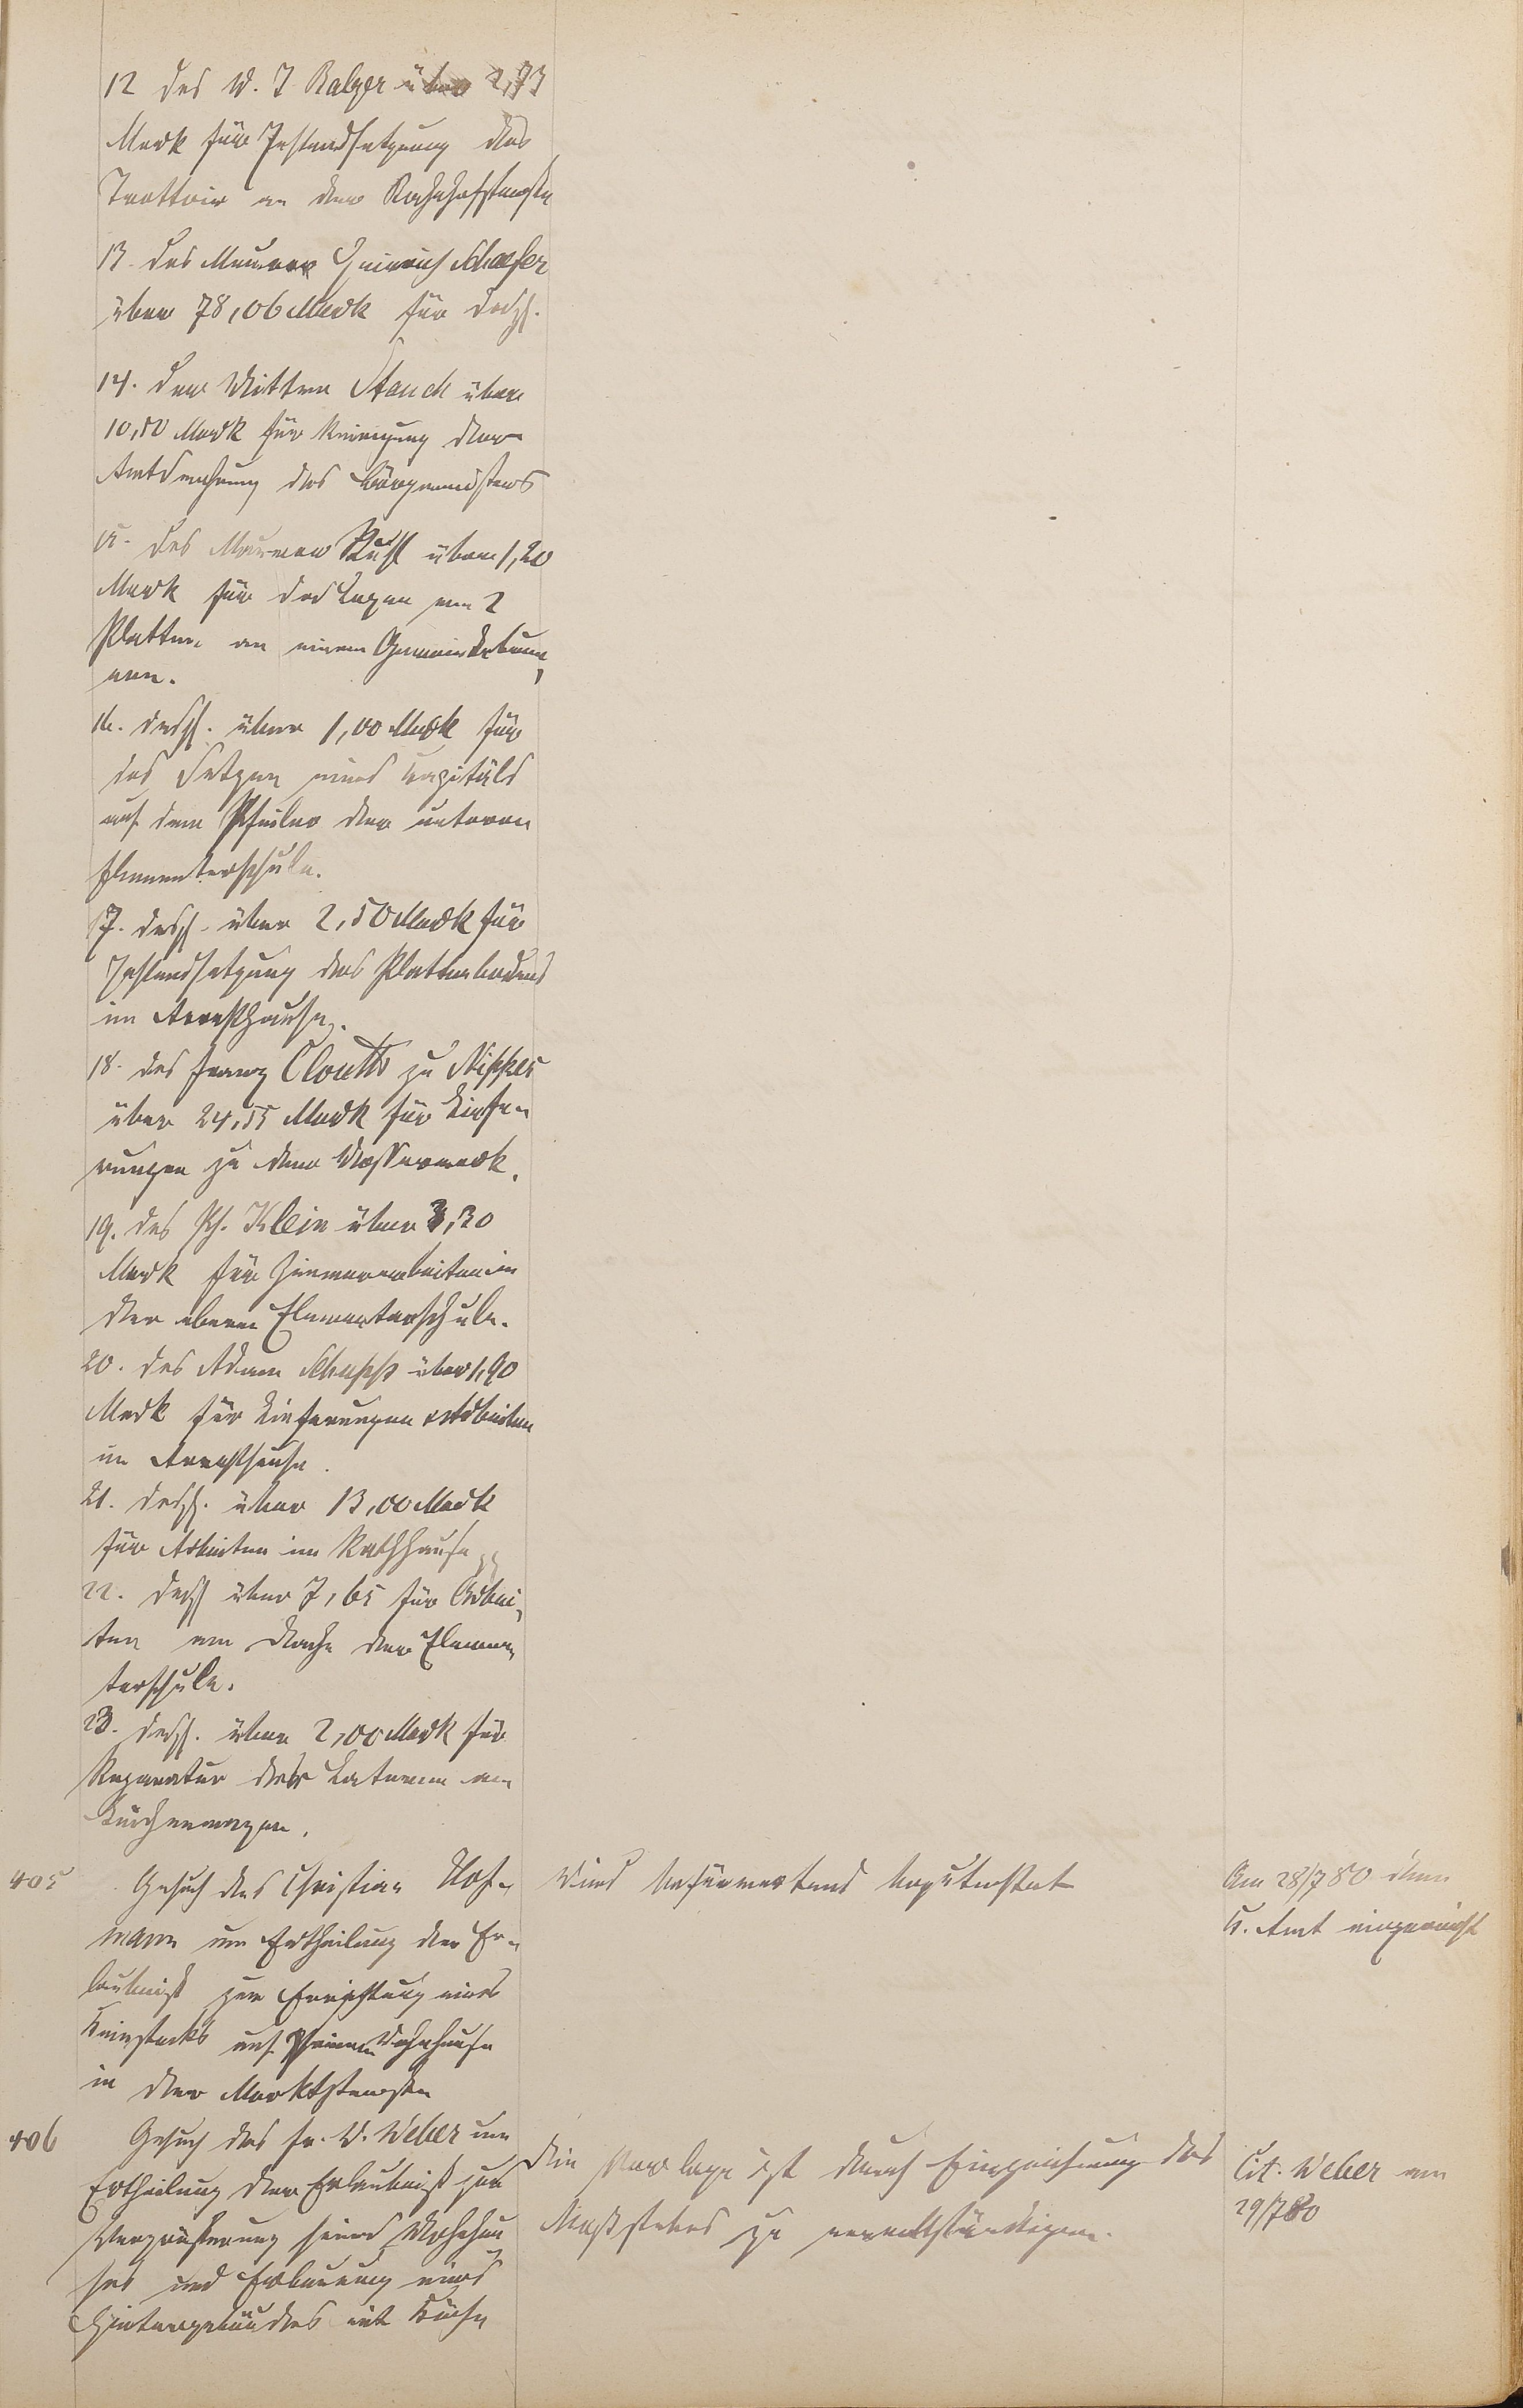 12 des W. J. Balzer über 2,73
Mark für Instandsetzung des
Trottoir in der Bahnhofstraße
13. des Maurer Heinrich Schaefer
über 78,06 Mark für desgl.
14. der Wittwe Stauch über
10,50 Mark für Reinigung der
Amtswohnung des Bürgermeisters
15. des Maurer Ruß über 1,20
Mark für das Legen von 2
Platten an einem Gemeindebrun-
nen.
16. desgl. über 1,00 Mark für
das Setzen eines Kapitäls
auf dem Pfeiler der unteren
Elementarschule.
17. desgl. über 2,50 Mark für
Instandsetzung des Plattenbodens
im Arresthause.
18. des Franz Clouth zu Nippes
über 24,55 Mark für Liefe-
rungen zu dem Wasserwerk.
19. des Ph. Klein über 3,30
Mark für Zimmerarbeiten in
der oberen Elementarschule.
20. des Adam Schupp über 1,90
Mark für Lieferungen & Arbeiten
im Arresthause.
21. desgl. über 13,00 Mark
für Arbeiten im Rathhause
22. desgl über 7,65 für Arbei-
ten am Dache der Elemen-
tarschule.
23. desgl. über 2,00 Mark für
Reparatur der Laterne am
405 Gesuch des Christian Hof-
mann um Ertheilung der Er-
laubniß zur Errichtung eines
Kniestocks auf seinem Wohnhause
in der Marktstraße
Wird befürwortend begutachtet
Am 28/7 80 dem
K. Amt eingereicht
406 Gesuch des Fr. W. Weber um
Ertheilung der Erlaubniß zur
Vergrößerung seines Wohnhau
ses und Erbauung eines
Hintergebäudes mit Küche
Die Vorlage ist durch Einzeichnung des
Maßstabes zu vervollständigen.
Cit. Weber am
29/7 80